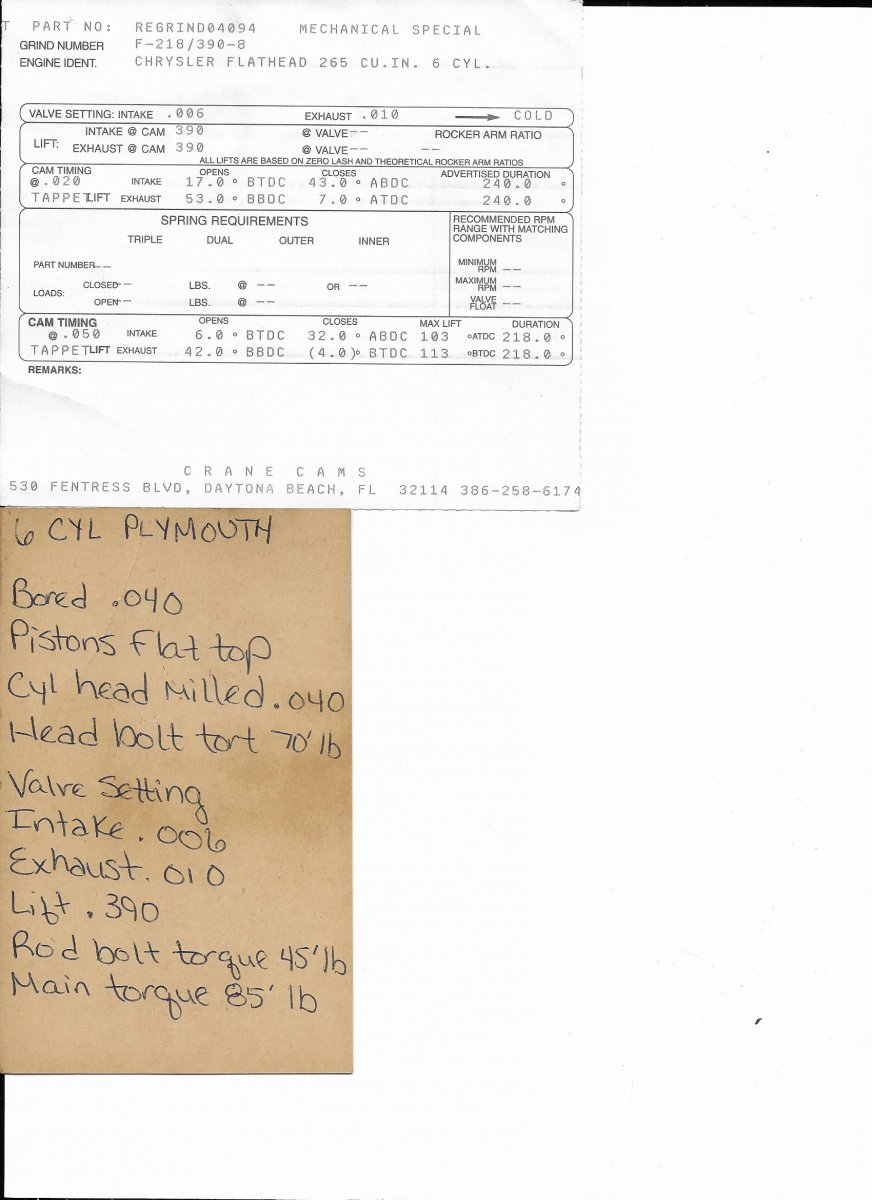 T PART NO: REGRIND04094 MECHANICAL SPECIAL
GRIND NUMBER F-218/390-8
ENGINE IDENT. CHRYSLER FLATHEAD 265 CU.IN. 6 CYL.
VALVE SETTING: INTAKE .006 EXHAUST .010 COLD
INTAKE @ CAM 390 @ VALVE -- ROCKER ARM RATIO
LIFT:
EXHAUST @ CAM 390 @ VALVE -- --
ALL LIFTS ARE BASED ON ZERO LASH AND THEORETICAL ROCKER ARM RATIOS
CAM TIMING OPENS CLOSES ADVERTISED DURATION
@ .020 INTAKE 17.0 ° BTDC 43.0 ° ABDC 240.0 °
TAPPET LIFT EXHAUST 53.0 ° BBDC 7.0 ° ATDC 240.0 °
SPRING REQUIREMENTS
TRIPLE DUAL OUTER INNER
PART NUMBER --
LOADS:
CLOSED -- LBS. @ -- OR --
OPEN -- LBS. @ --
RECOMMENDED RPM
RANGE WITH MATCHING
COMPONENTS
MINIMUM
RPM --
MAXIMUM
RPM --
VALVE
FLOAT --
CAM TIMING OPENS CLOSES MAX LIFT DURATION
@ .050 INTAKE 6.0 ° BTDC 32.0 ° ABDC 103 °ATDC 218.0 °
TAPPET LIFT EXHAUST 42.0 ° BBDC (4.0)° BTDC 113 °BTDC 218.0 °
REMARKS:
CRANE CAMS
530 FENTRESS BLVD, DAYTONA BEACH, FL 32114 386-258-6174
6 CYL PLYMOUTH
Bored .040
Pistons flat top
Cyl head Milled .040
Head bolt tort 70' lb
Valve Setting
Intake .006
Exhaust .010
Lift .390
Rod bolt torque 45' lb
Main torque 85' lb